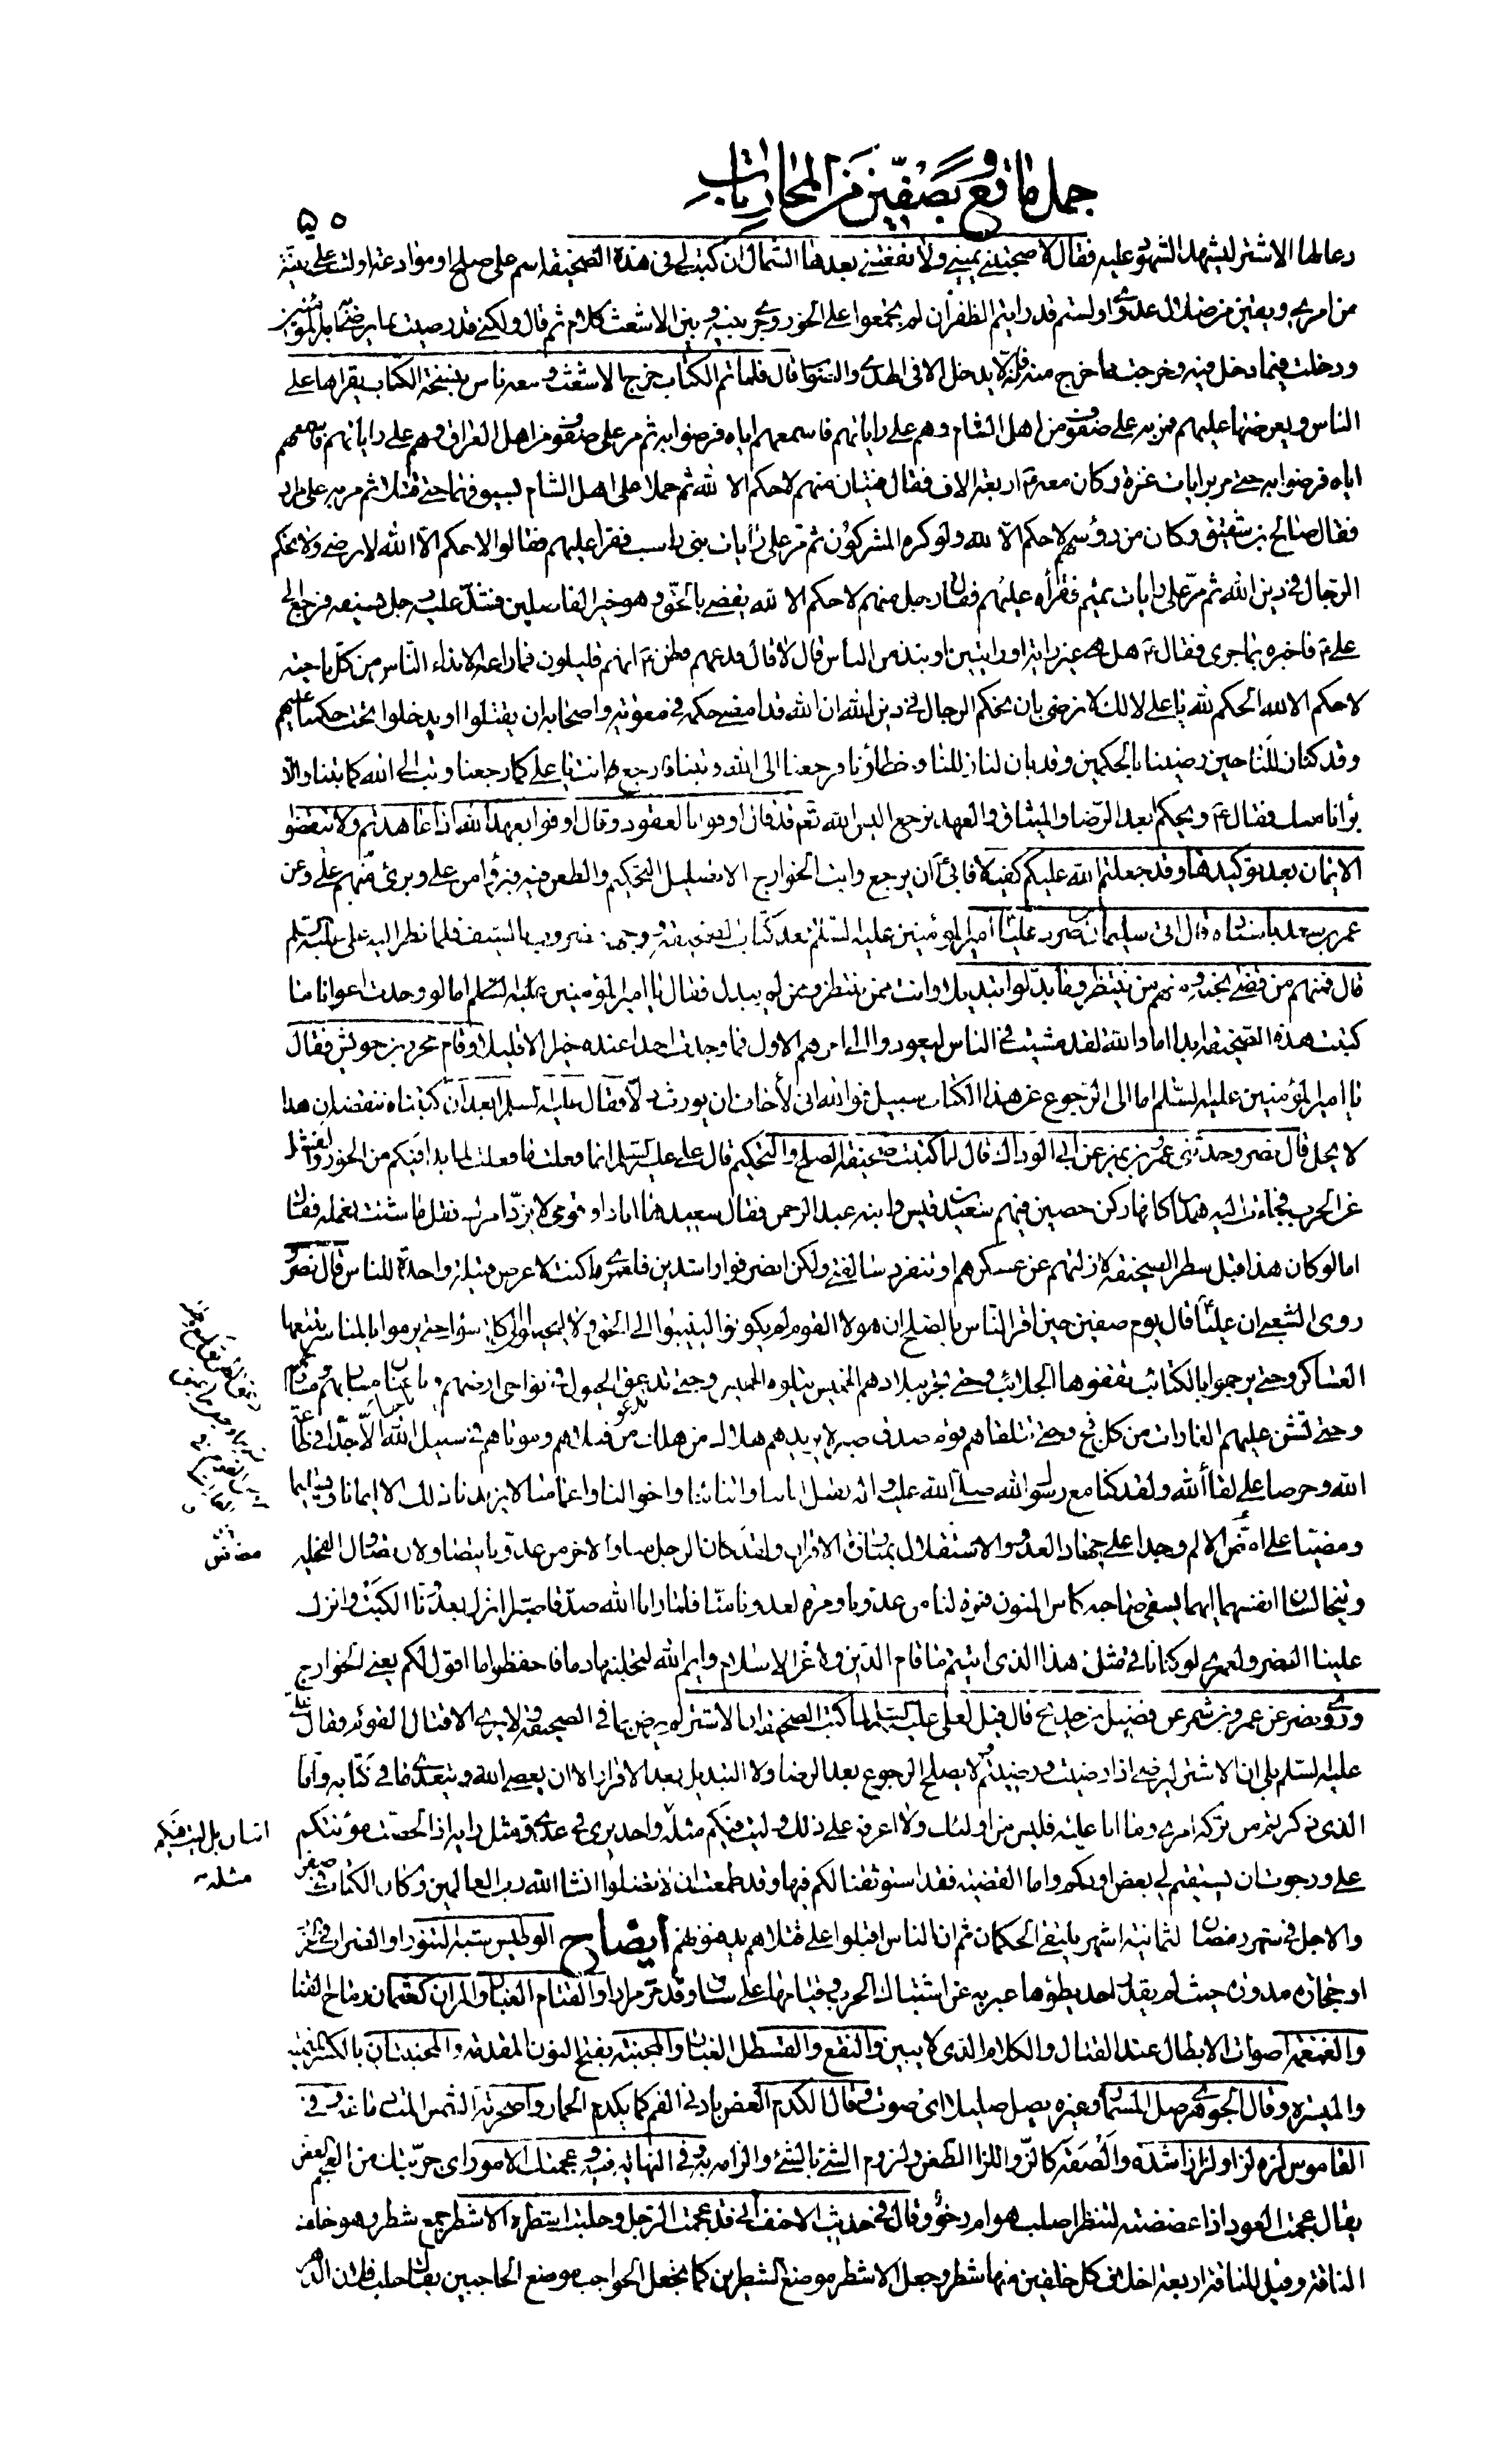 جمل ما وقع بصفين من المحاربات
٥٠
دعا لها الاشتر ليشهد الشهود عليه فقال لا صحبتني يميني ولا نفعتني بعدها الشمال ان كتب لي في هذه الصحيفة اسم على صلح او موادعة اولست على بينة
من امري ويقين من ضلال عدوي اولستم قد رايتم الظفر ان لم تجمعوا على الخور وجرى بينه وبين الاشعث كلام ثم قال ولكني قد رضيت بما يرضى به امير المؤمنين
ودخلت فيما دخل فيه وخرجت مما خرج منه فانه لا يدخل الا في الهدى والصواب قال فلما تم الكتاب خرج الاشعث ومعه ناس بنسخة الكتاب يقراها على
الناس ويعرضها عليهم فمر به على صفوف من اهل الشام وهم على راياتهم فاسمعهم اياه فرضوا به ثم مر على صفوف من اهل العراق وهم على راياتهم فاسمعهم
اياه فرضوا به حتى مر برايات عنزة وكان معه ع اربعة الاف فقال فتيان منهم لا حكم الا لله ثم حملا على اهل الشام بسيوفهما حتى قتلا ثم مر به على مراد
فقال صالح بن شقيق وكان من رؤسهم لا حكم الا لله ولو كره المشركون ثم مر على رايات بني راسب فقرا عليهم فقالوا لا حكم الا الله لا نرضى ولا نحكم
الرجال في دين الله ثم مر على رايات تميم فقرأه عليهم فقال رجل منهم لا حكم الا لله يقضي بالحق وهو خير الفاصلين فشد عليه رجل بسيفه فرجع الى
علي ع فاخبره بما جرى فقال ع هل هي غير راية او رايتين او نبذ من الناس قال لا قال فدعهم فظن ع انهم قليلون فما راعه الا نداء الناس من كل ناحية
لا حكم الا لله الحكم لله يا علي لا لك لا نرضى بان يحكم الرجال في دين الله ان الله قد امضى حكمه في معوية واصحابه ان يقتلوا او يدخلوا تحت حكمنا عليهم
وقد كان للنا حين رضينا بالحكمين وقد بان لنا زللنا وخطاؤنا فرجعنا الى الله وتبنا فارجع انت يا علي كما رجعنا وتب الى الله كما تبنا والا
برئنا منك فقال ع ويحكم ابعد الرضا والميثاق والعهد نرجع اليس الله تعم قد قال اوفوا بالعقود وقال اوفوا بعهد الله اذا عاهدتم ولا تنقضوا
الايمان بعد توكيدها وقد جعلتم الله عليكم كفيلا فابى ان يرجع وابت الخوارج الا تضليل التحكيم والطعن فيه فبرؤا من علي وبرئ منهم علي وعن
عمر بن سعد باسناده قال اتى سليمان بن صرد عليا امير المؤمنين عليه السلام بعد كتاب الصحيفة ووجهه مضروب بالسيف فلما نظر اليه علي عليه السلم
قال فمنهم من قضى نحبه ومنهم من ينتظر وما بدلوا تبديلا وانت ممن ينتظر وممن لم يبدل فقال يا امير المؤمنين عليه السلم اما لو وجدت اعوانا ما
كتبت هذه الصحيفة ابدا اما والله لقد مشيت في الناس ليعودوا الى امرهم الاول فما وجدت احدا عنده خير الا قليلا وقام محرز بن حريش فقال
يا امير المؤمنين عليه السلم اما الى الرجوع عن هذا الكتاب سبيل فوالله اني لأخاف ان يورث ذلا فقال عليه السلم ابعد ان كتبناه ننقضه ان هذا
لا يحل قال نصر وحدثني عمر بن نمير عن ابي الوداك قال لما كتبت صحيفة الصلح والتحكيم قال علي عليه السلم انما فعلت ما فعلت لما بدا فيكم من الخور والفشل
عن الحرب فجاءت اليه همدان كانها ركن حصين فيهم سعيد بن قيس وابنه عبد الرحمن فقال سعيد ها انا ذا وقومي لا نرد امرك فقل ما شئت نعمله فقال
اما لو كان هذا قبل سطر الصحيفة لازلتهم عن عسكرهم او تنفرد سالفتي ولكن انصرفوا راشدين فلعمري ما كنت لاعرض قبيلة واحدة للناس قال نصر
روى الشعبي ان عليا قال يوم صفين حين اقر الناس بالصلح ان هولاء القوم لم يكونوا لينيبوا الى الحق ولا ليجيبوا الى كلمة سواء حتى يرموا بالمناسر تتبعها
العساكر وحتى يرجموا بالكتائب تقفوها الجلائب وحتى يجر ببلادهم الخميس يتلوه الخميس وحتى تدعق الخيول في نواحي ارضهم وباعنان مساربهم ومسارحهم
وحتى تشن عليهم الغارات من كل فج وحتى تلقاهم قوم صدق صبر لا يزيدهم هلاك من هلك من قتلاهم وموتاهم في سبيل الله الا جدا في طاعة
الله وحرصا على لقاء الله ولقد كنا مع رسول الله صلى الله عليه واله نقتل اباءنا وابناءنا واخواننا واعمامنا لا يزيدنا ذلك الا ايمانا وتسليما
ومضيا على امض الالم وجدا على جهاد العدو والاستقلال بمبارزة الاقران ولقد كان الرجل منا والاخر من عدونا يتصاولان تصاول الفحلين
ويتخالسان انفسهما ايهما يسقي صاحبه كاس المنون فمرة لنا من عدونا ومرة لعدونا منا فلما رانا الله صدقا صبرا انزل بعدونا الكبت وانزل
علينا النصر ولعمري لو كنا ناتي مثل هذا الذي اتيتم ما قام الدين ولا عز الاسلام وايم الله لتحلبنها دما فاحفظوا ما اقول لكم يعني الخوارج
وروى نصر عن عمرو بن شمر عن فضيل بن خديج قال قيل لعلي عليه السلم لما كتبت الصحيفة ان الاشتر لم يرض بما في الصحيفة ولا يرى الا قتال القوم فقال علي
عليه السلم بلى ان الاشتر ليرضى اذا رضيت وقد رضيتم ولا يصلح الرجوع بعد الرضا ولا التبديل بعد الاقرار الا ان يعصى الله ويتعدى ما في كتابه واما
الذي ذكرتم من تركه امري وما انا عليه فليس من اولئك ولا اعرفه على ذلك وليت فيكم مثله واحد يرى في عدوي مثل رايه اذا لخفت مؤنتكم
علي ورجوت ان يستقيم لي بعض اودكم واما القضية فقد استوثقنا لكم فيها وقد طمعت ان لا تضلوا انشا الله رب العالمين وكان الكتاب في صفر
والاجل في شهر رمضان لثمانية اشهر يلتقي الحكمان ثم ان الناس اقبلوا على قتلاهم يدفنونهم ايضاح الوطيس شبه التنور او الضراب في الحرب
او حجارة مدورة حيث لم يقدر احد يطؤها عبر به عن اشتباك الحرب وقيامها على ساق وقد مر مرارا والقتام الغبار والمران كعثمان رماح القنا
والغمغمة اصوات الابطال عند القتال والكلام الذي لا يبين والنقع والقسطل الغبار والمجنبة بفتح النون المقدمة والمجنبتان بالكسر الميمنة
والميسرة وقال الجوهري صل المسمار وغيره يصل صليلا اى صوت وقال الكدم العض بادنى الفم كما يكدم الحمار واصحرته الشمس المت دماغه وفي
القاموس لزه لزا ولززا شده والصقه كالزه واللز الطعن ولزوم الشئ بالشئ والزامه به وفي النهاية فيه وعجمتك الامور اي جربتك من العجم العض
يقال عجمت العود اذا عضضته لتنظر اصلب هو ام رخو وقال في حديث الاحنف اني قد عجمت الرجل وحلبت اشطره الاشطر جمع شطر وهو خلف
الناقة وقيل للناقة اربعة اخلاف كل خلفين منها شطر وجعل الاشطر موضع الشطرين كما تجعل الحواجب موضع الحاجبين يقال حلب فلان الدهر
انسان بل ليت فيكم
مثله